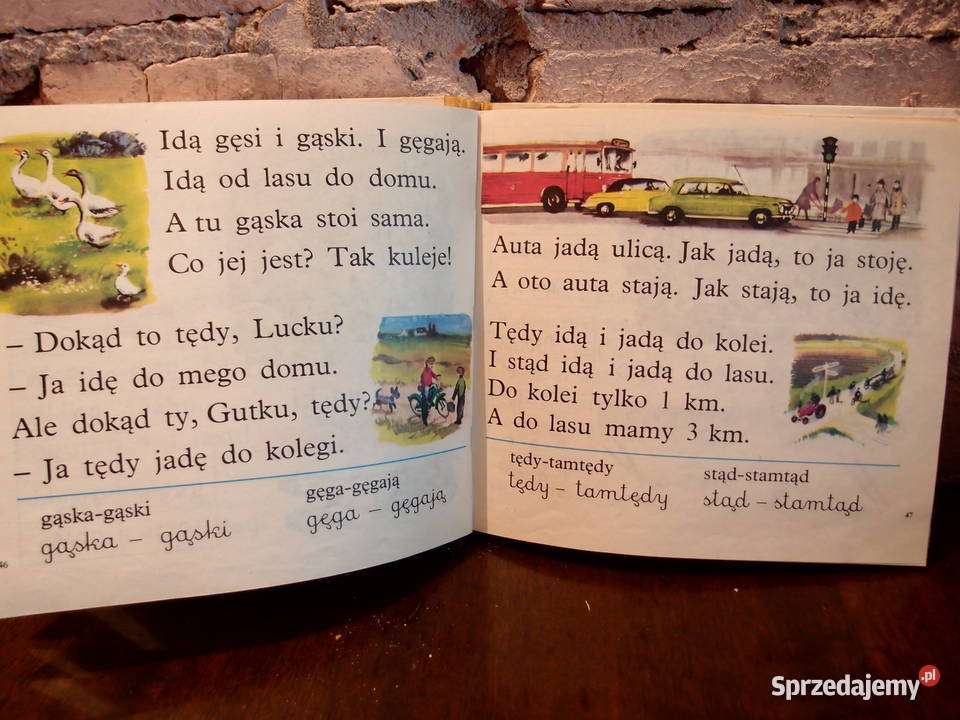 Idą gęsi i gąski. I gęgają.
Idą od lasu do domu.
A tu gąska stoi sama.
Co jej jest? Tak kuleje!
– Dokąd to tędy, Lucku?
– Ja idę do mego domu.
Ale dokąd ty, Gutku, tędy?
– Ja tędy jadę do kolegi.
gąska-gąski
gąska – gąski
gęga-gęgają
gęga – gęgają
46
Auta jadą ulicą. Jak jadą, to ja stoję.
A oto auta stają. Jak stają, to ja idę.
Tędy idą i jadą do kolei.
I stąd idą i jadą do lasu.
Do kolei tylko 1 km.
A do lasu mamy 3 km.
tędy-tamtędy
tędy – tamtędy
stąd-stamtąd
stąd – stamtąd
47
Sprzedajemy.pl